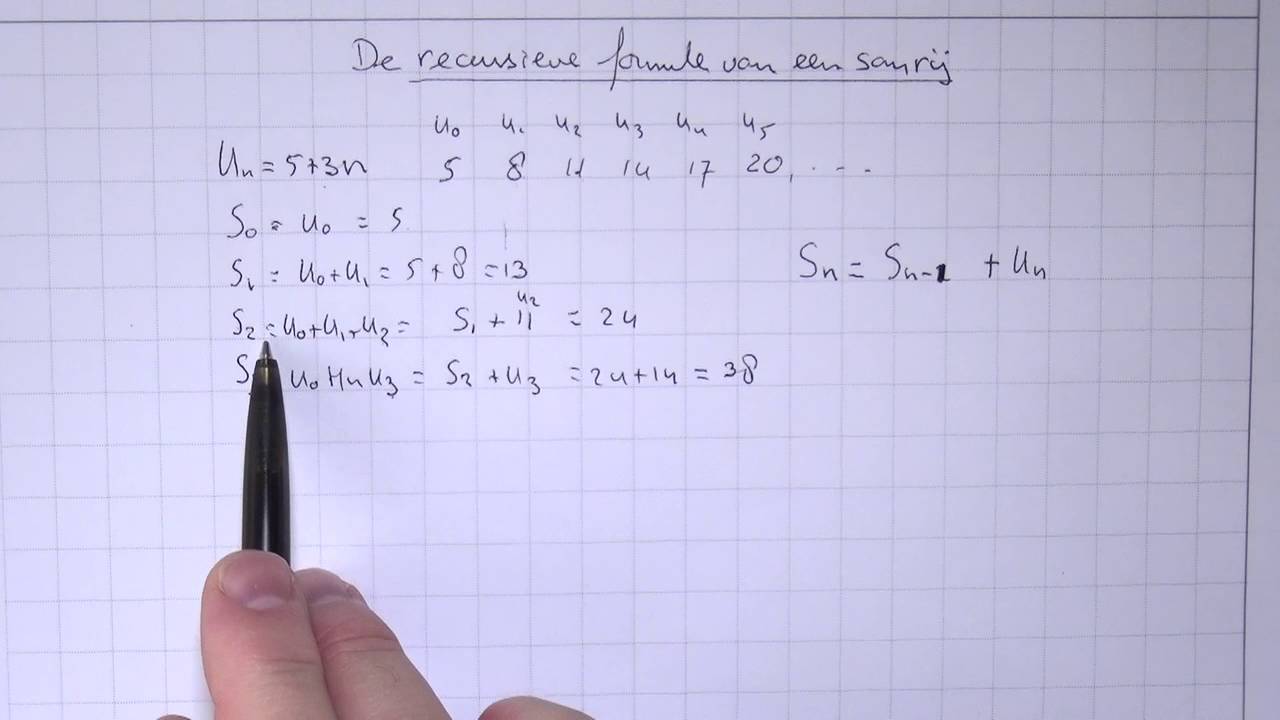 De recursieve formule van een somrij
u0 u1 u2 u3 u4 u5
Un = 5+3n 5 8 11 14 17 20, ...
S0 = u0 = 5
S1 = u0+u1 = 5 + 8 = 13
Sn = Sn-1 + Un
u2
S2 = u0+u1+u2 = S1 + 11 = 24
S u0 + u3 = S2 + u3 = 24+14 = 38